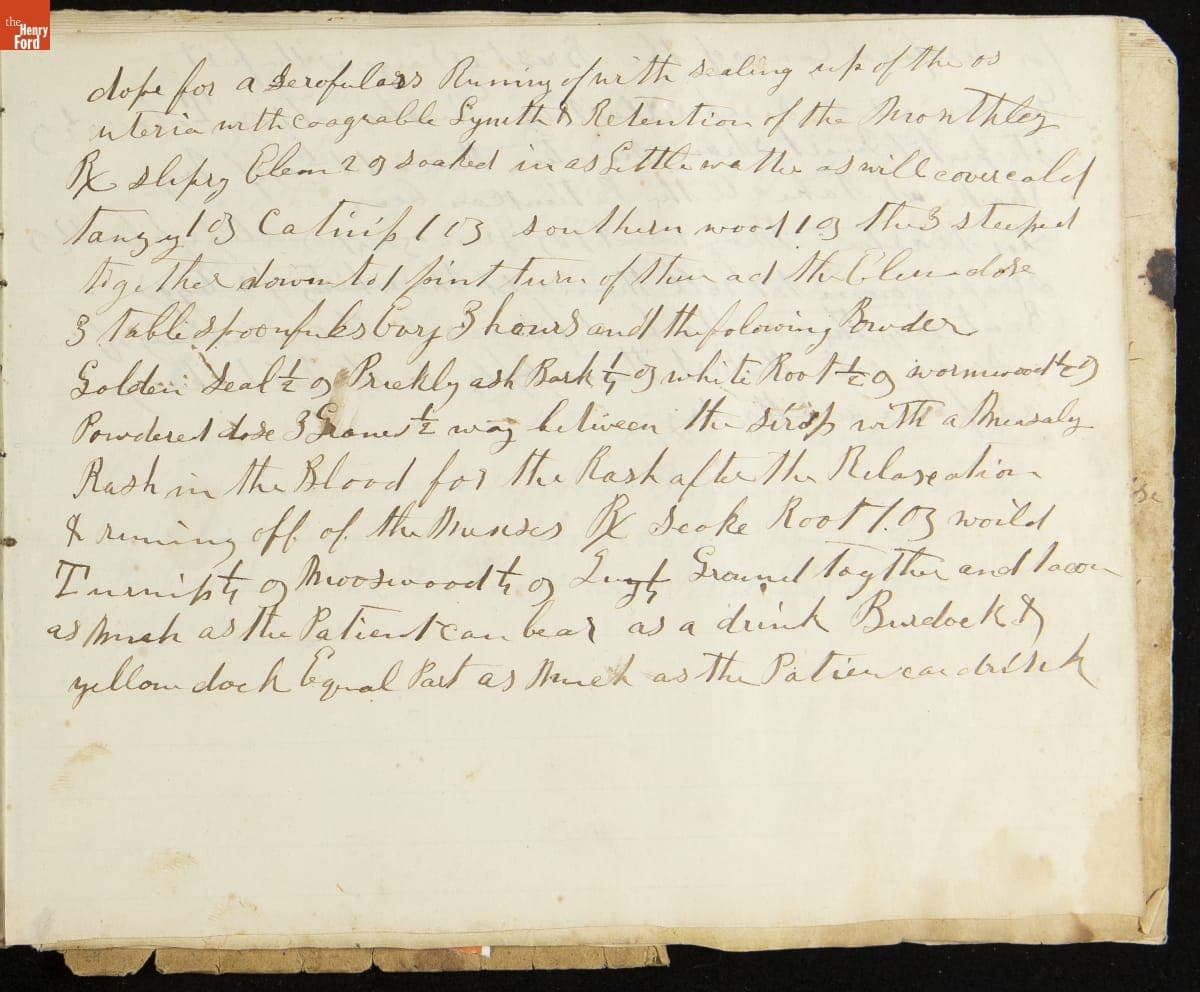 the Henry Ford
dope for a Scrofulass Runing of with sealing up of the os
uteria with coagrable Lymth & Retention of the Monthley
Rx slipry Elem 2 oz soaked in as Little wather as will cover cald
tanzy 1 oz Catnip 1 oz southern wood 1 oz the 3 steeped
together down to 1 pint turn of then ad the Elem dose
3 table spoonfuls Evry 3 hours and the folowing Powder
Golden Seal ½ oz Prickly ash Bark ¼ oz white Root ½ oz wormwood ½ oz
Powdered dose 3 Graned ½ way between the sirop with a Measaly
Rash in the Blood for the Rash after the Relaxation
& runing off of the Menses Rx Scoke Root 1. oz woild
Turnip ¼ oz Mooswood ¼ oz Ground together and
as Much as the Patient can bear as a drink Burdock &
yellow dock Equal Part as Much as the Patien can drink